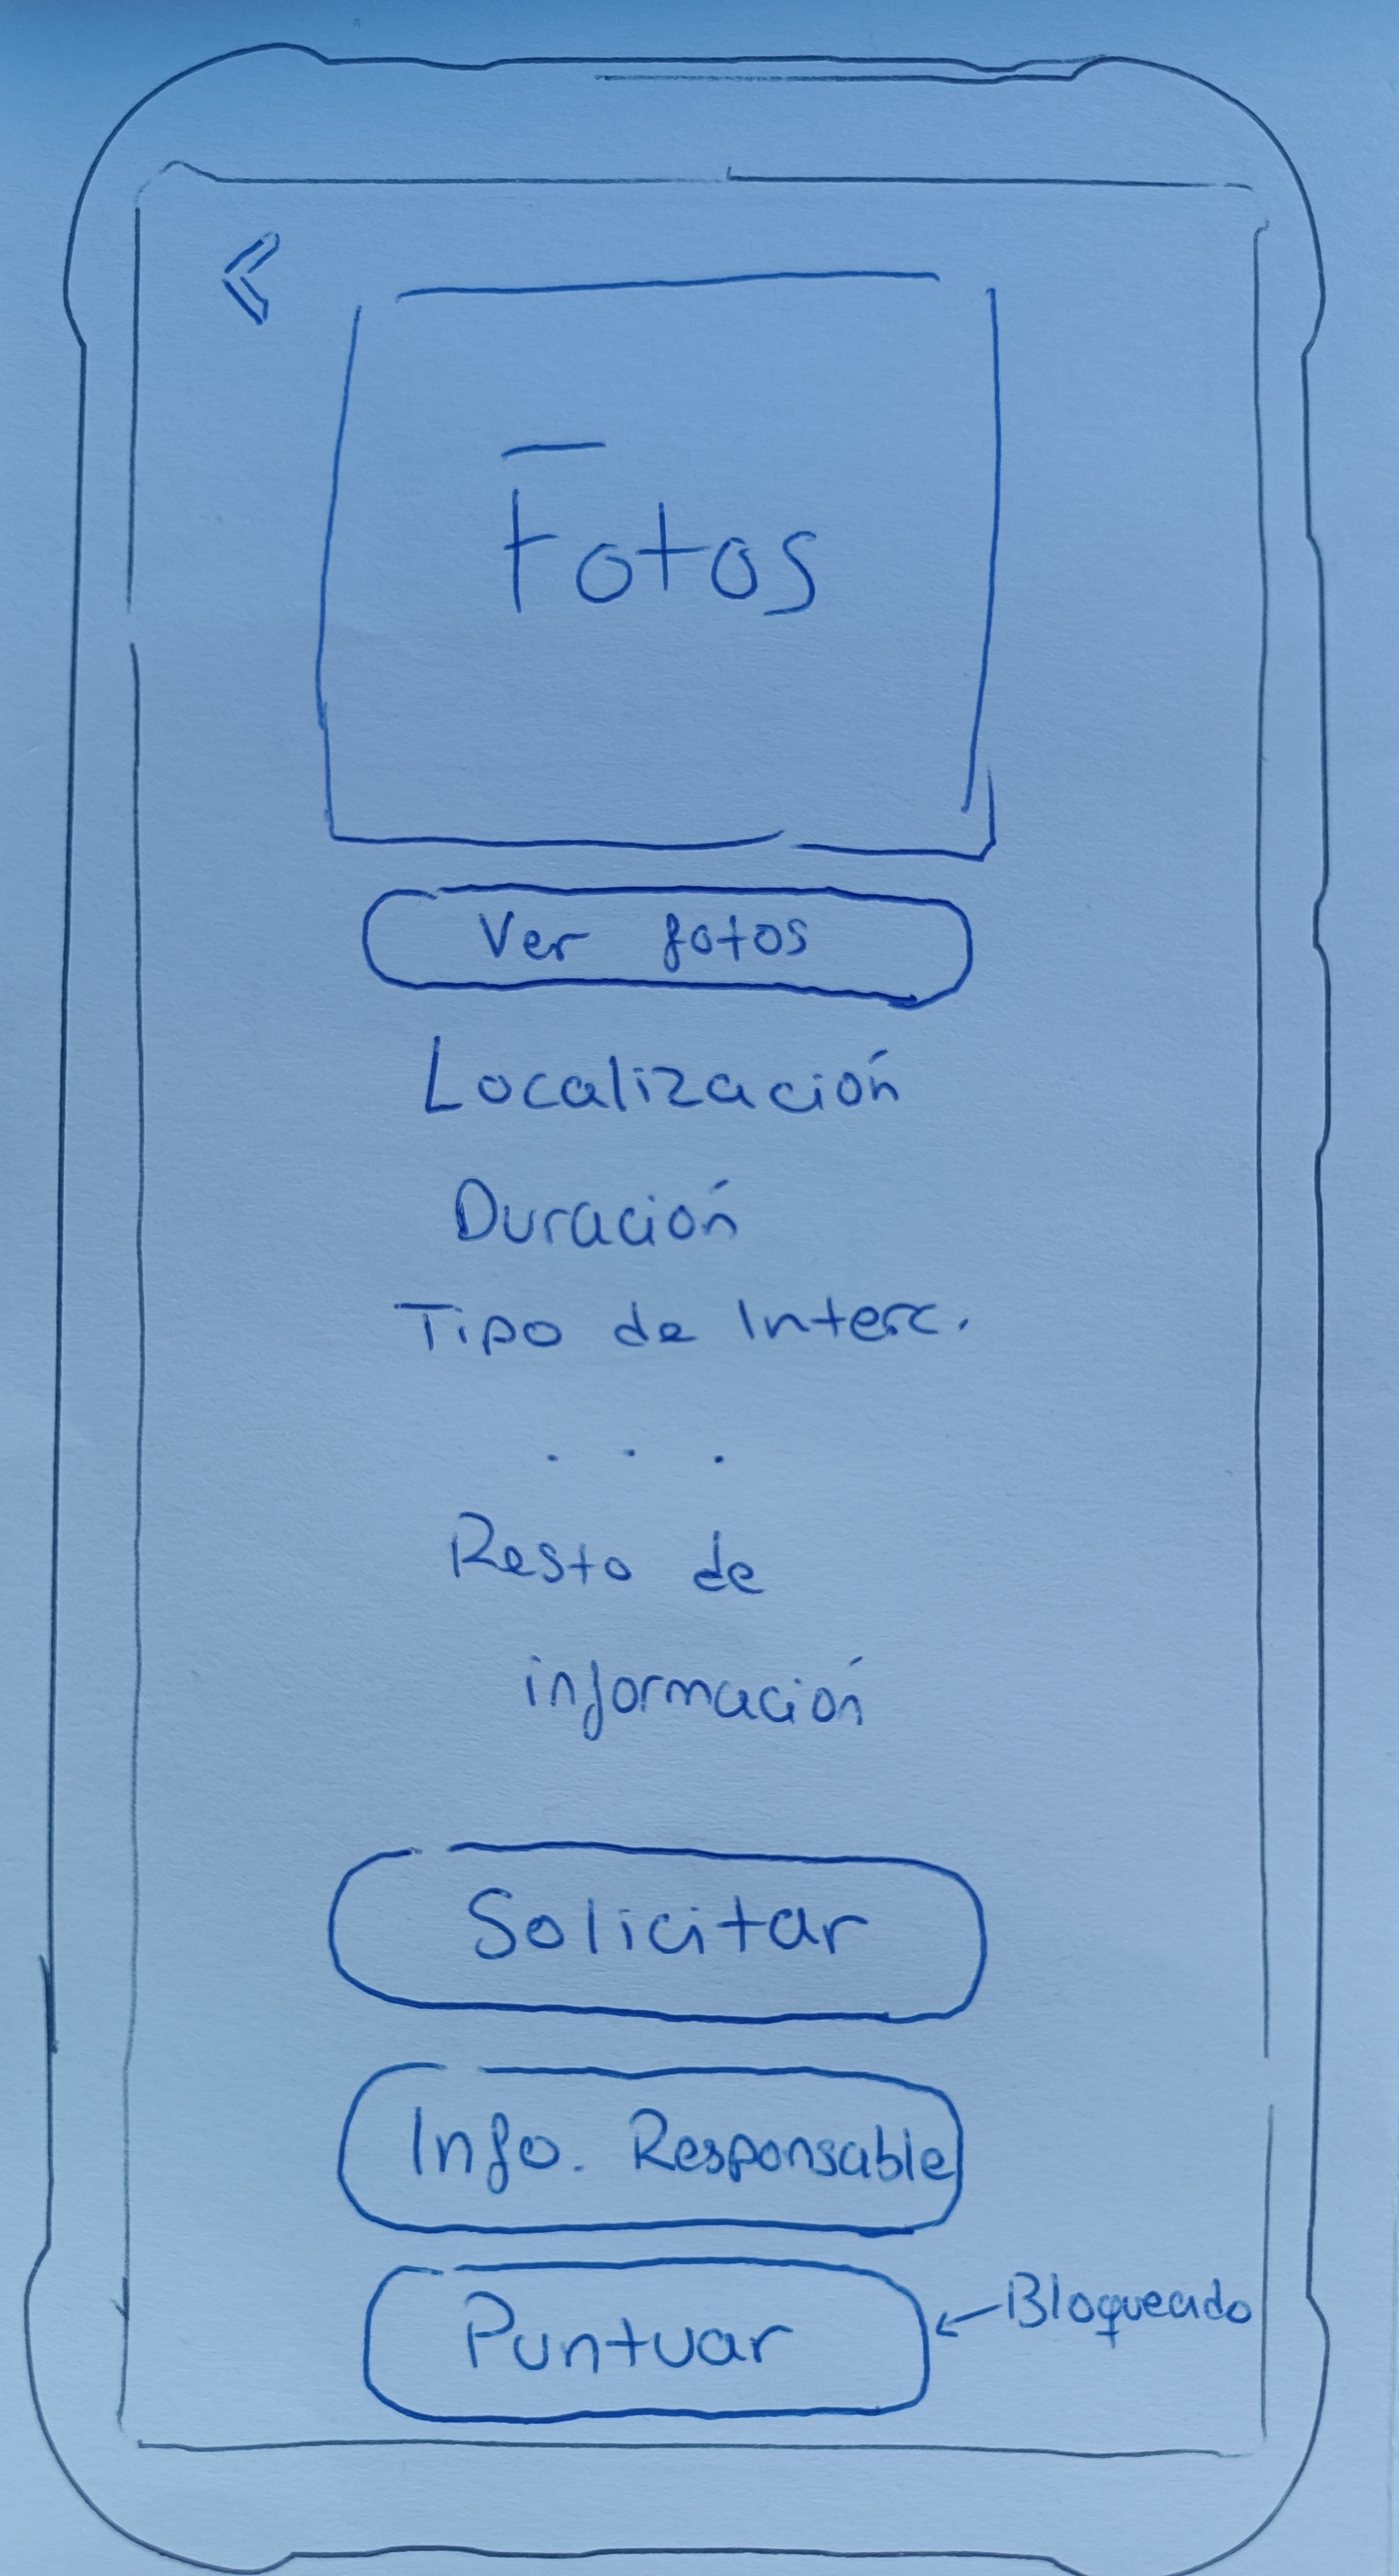 Fotos
Ver fotos
Localización
Duración
Tipo de Interc.
. . .
Resto de
información
Solicitar
Info. Responsable
Puntuar
Bloqueado